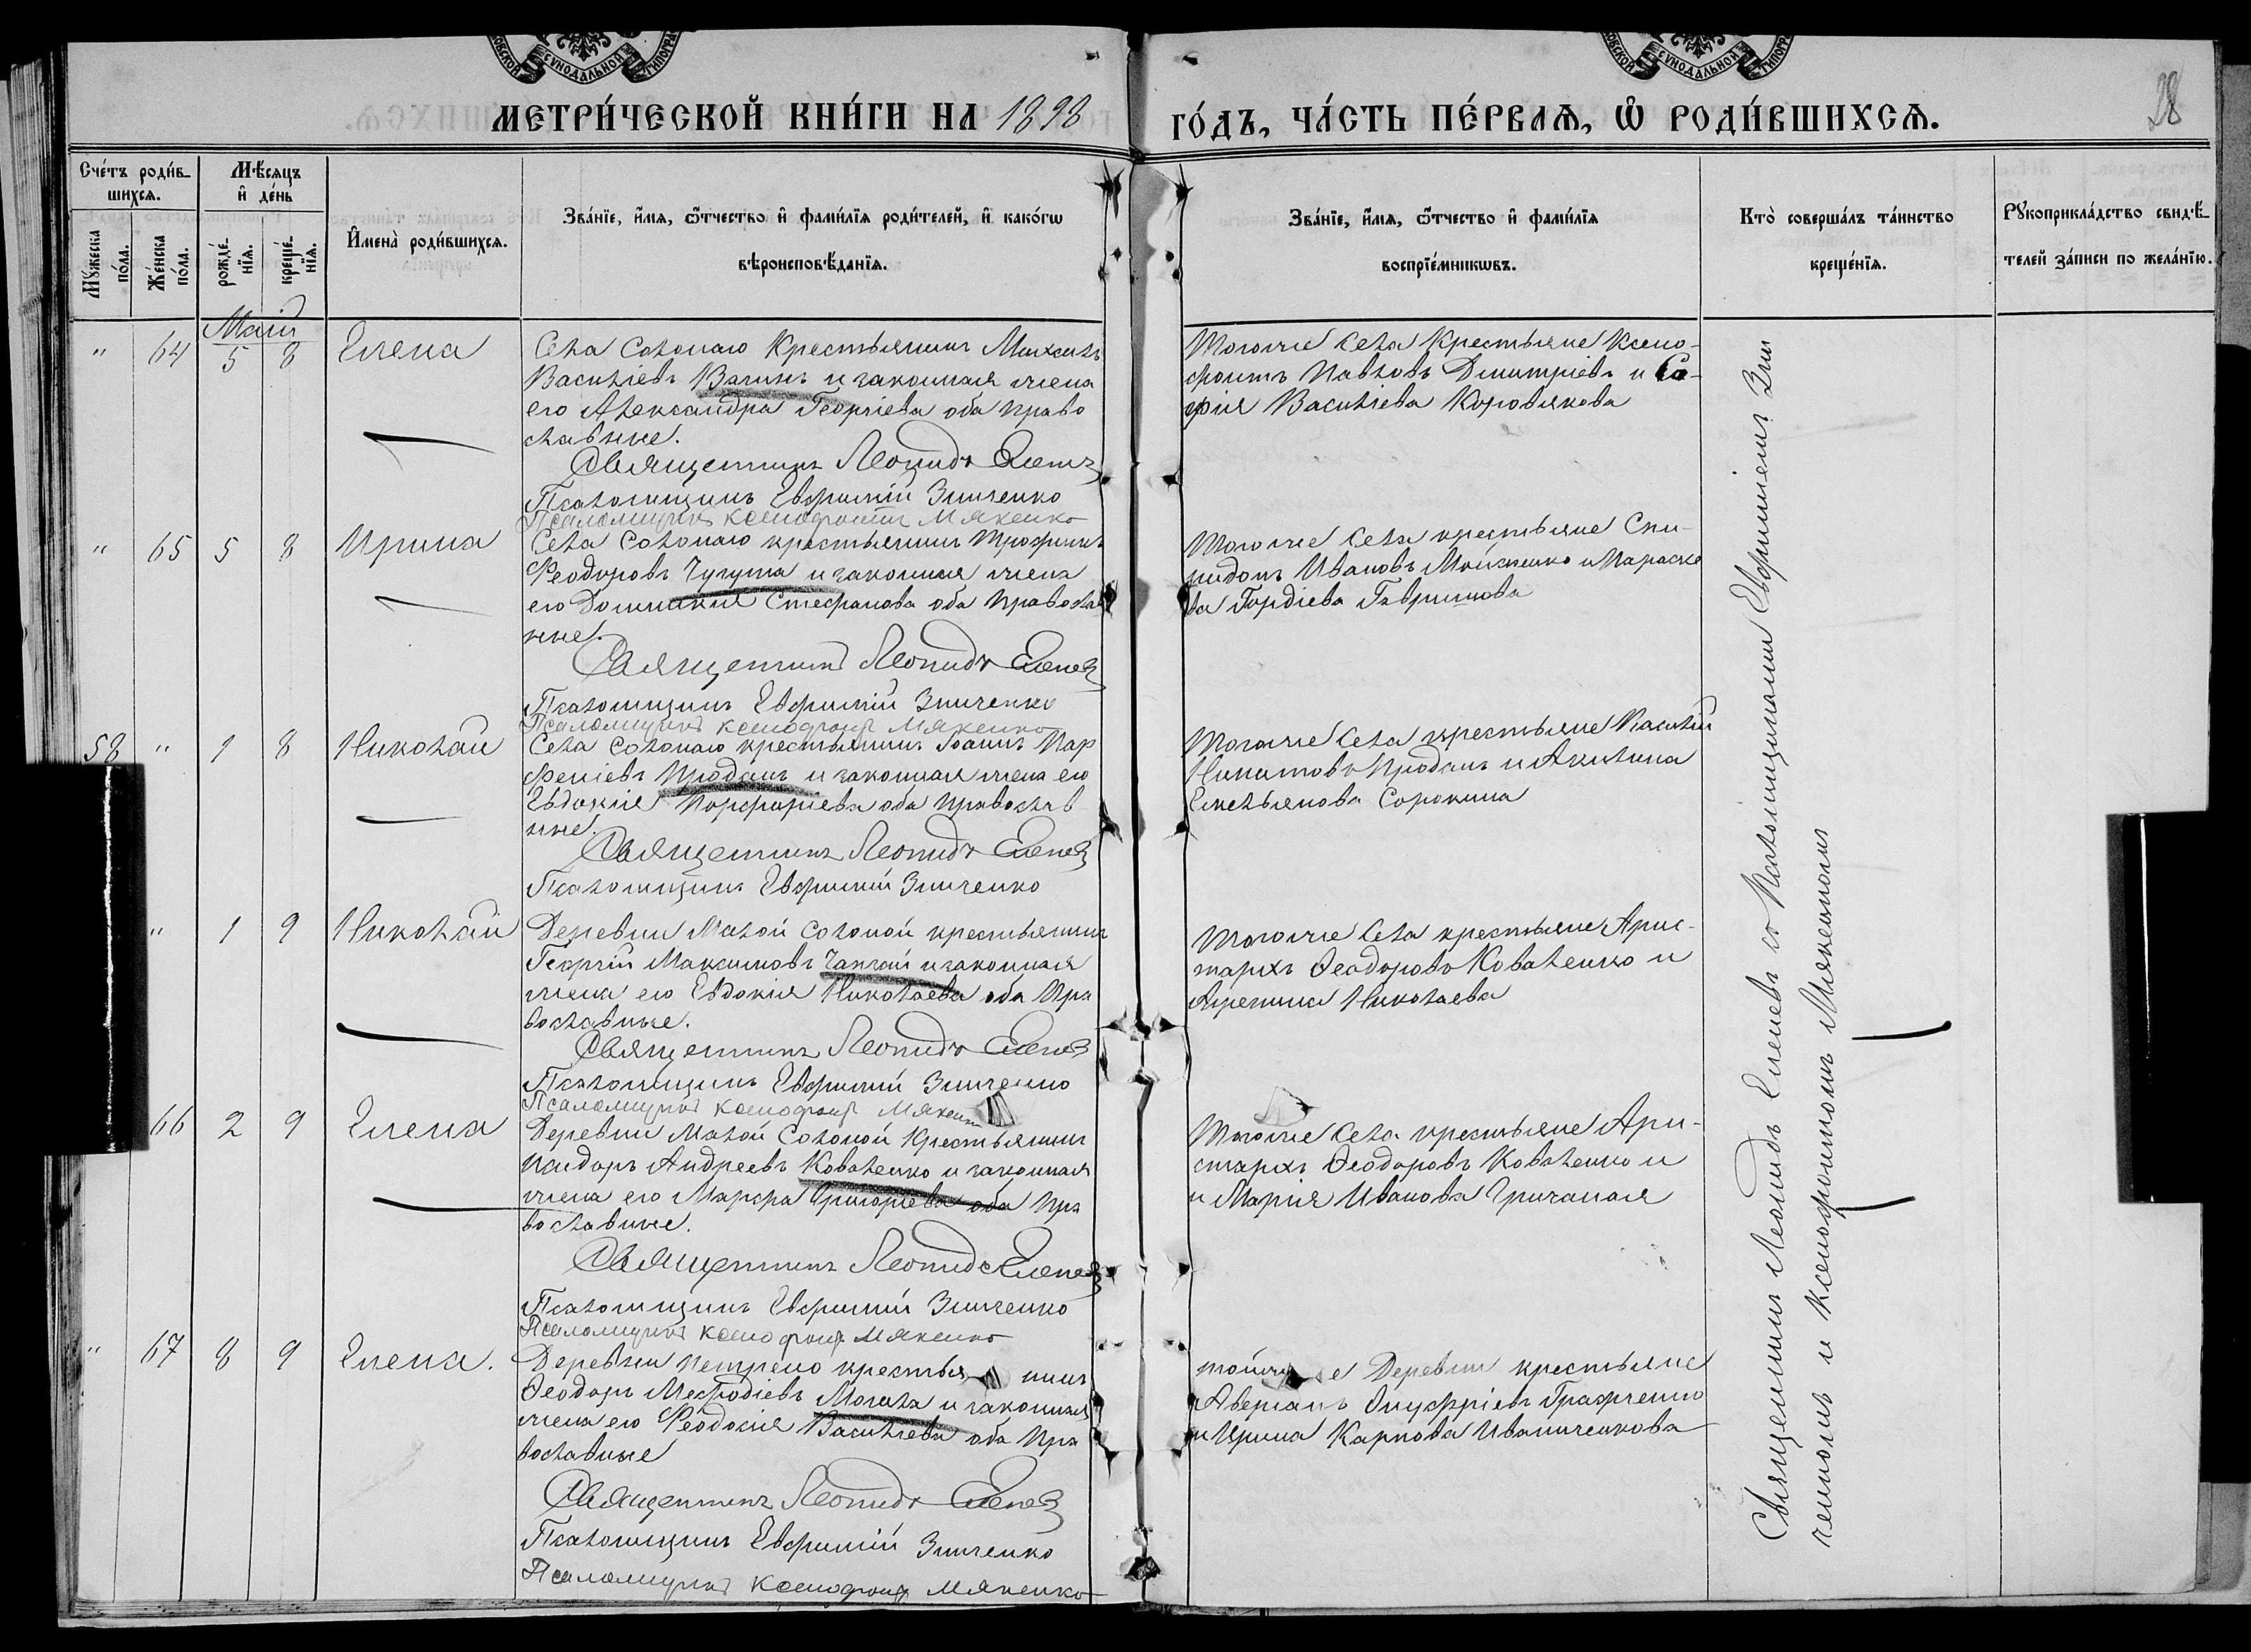 МЕТРИ́ЧЕСКОЙ КНИ́ГИ НА 1898 ГО́ДЪ, ЧА́СТЬ ПЕ́РВАѦ, Ѡ҆ РОДИ́ВШИХСѦ.
28
Сче́тъ роди́в-
шихсѧ.
Мѣ́сѧцъ
и҆ де́нь
Мꙋ́жеска
по́ла.
Же́нска
по́ла.
рожде́-
нїѧ.
креще́-
нїѧ.
И҆мена̀ роди́вшихсѧ.
Зва́нїе, и҆́мѧ, ѻ҆́тчество и҆ фами́лїѧ роди́телей, и҆ како́гѡ
вѣроисповѣ́данїѧ.
Зва́нїе, и҆́мѧ, ѻ҆́тчество и҆ фами́лїѧ
воспрїе́мникѡвъ.
Кто̀ соверша́лъ та́инство
креще́нїѧ.
Рꙋкоприкла́дство свидѣ́-
телей за́писи по жела́нїю.
Май
" 64 5 8 Елена
Села Солонаго Крестьянинъ Михаилъ
Васильевъ Вагинъ и законная жена
его Александра Георгіева оба право
славные.
Священникъ Леонидъ Еленевъ
Псаломщикъ Евфимій Зинченко
Псаломщикъ Ксенофонтъ Мякенко
Тогоже Села Крестьяне Ксено-
фонтъ Павловъ Дмитріевъ и Со-
фія Васильева Коровякова
" 65 5 8 Ирина
Села Солонаго крестьянинъ Трофимъ
Феодоровъ Чугута и законная жена
его Домникія Стефанова оба Правосла
вные.
Священникъ Леонидъ Еленевъ
Псаломщикъ Евфимій Зинченко
Псаломщикъ Ксенофонтъ Мякенко
Тогоже Села крестьяне Спи-
ридонъ Ивановъ Мойсеенко и Параске
ва Гордіева Гавришова
58 " 1 8 Николай
Села Солонаго крестьянинъ Іоаннъ Пар
феніевъ Проданъ и законная жена его
Евдокія Порфиріева оба Православ
ные.
Священникъ Леонидъ Еленевъ
Псаломщикъ Евфимій Зинченко
Тогоже Села крестьяне Василій
Никитовъ Проданъ и Акилина
Емельянова Сорокина
" 1 9 Николай
Деревни Малой Солоной крестьянинъ
Георгій Максимовъ Чапчай и законная
жена его Евдокія Николаева оба Пра
вославные.
Священникъ Леонидъ Еленевъ
Псаломщикъ Евфимій Зинченко
Псаломщикъ Ксенофонтъ Мякенко
Тогоже Села крестьяне Арис-
тархъ Феодоровъ Коваленко и
Агрепина Николаева
66 2 9 Елена
Деревни Малой Солоной Крестьянинъ
Исидоръ Андреевъ Коваленко и законная
жена его Марфа Григоріева оба Пра
вославные.
Священникъ Леонидъ Еленевъ
Псаломщикъ Евфимій Зинченко
Псаломщикъ Ксенофонтъ Мякенко
Тогоже Села крестьяне Ари-
стархъ Феодоровъ Коваленко и
и Марія Иванова Гричаная
" 67 8 9 Елена.
Деревни Петрено крестьянинъ
Феодоръ Мефодіевъ Могила и законная
жена его Феодосія Васильева оба Пра
вославные
Священникъ Леонидъ Еленевъ
Псаломщикъ Евфимій Зинченко
Псаломщикъ Ксенофонтъ Мякенко
тойже Деревни крестьяне
Аверіанъ Онуфріевъ Графченко
и Ирина Карпова Иваниченкова
Священникъ Леонидъ Еленевъ съ Псаломщиками Евфиміемъ Зин
ченкомъ и Ксенофонтомъ Мякенкомъ